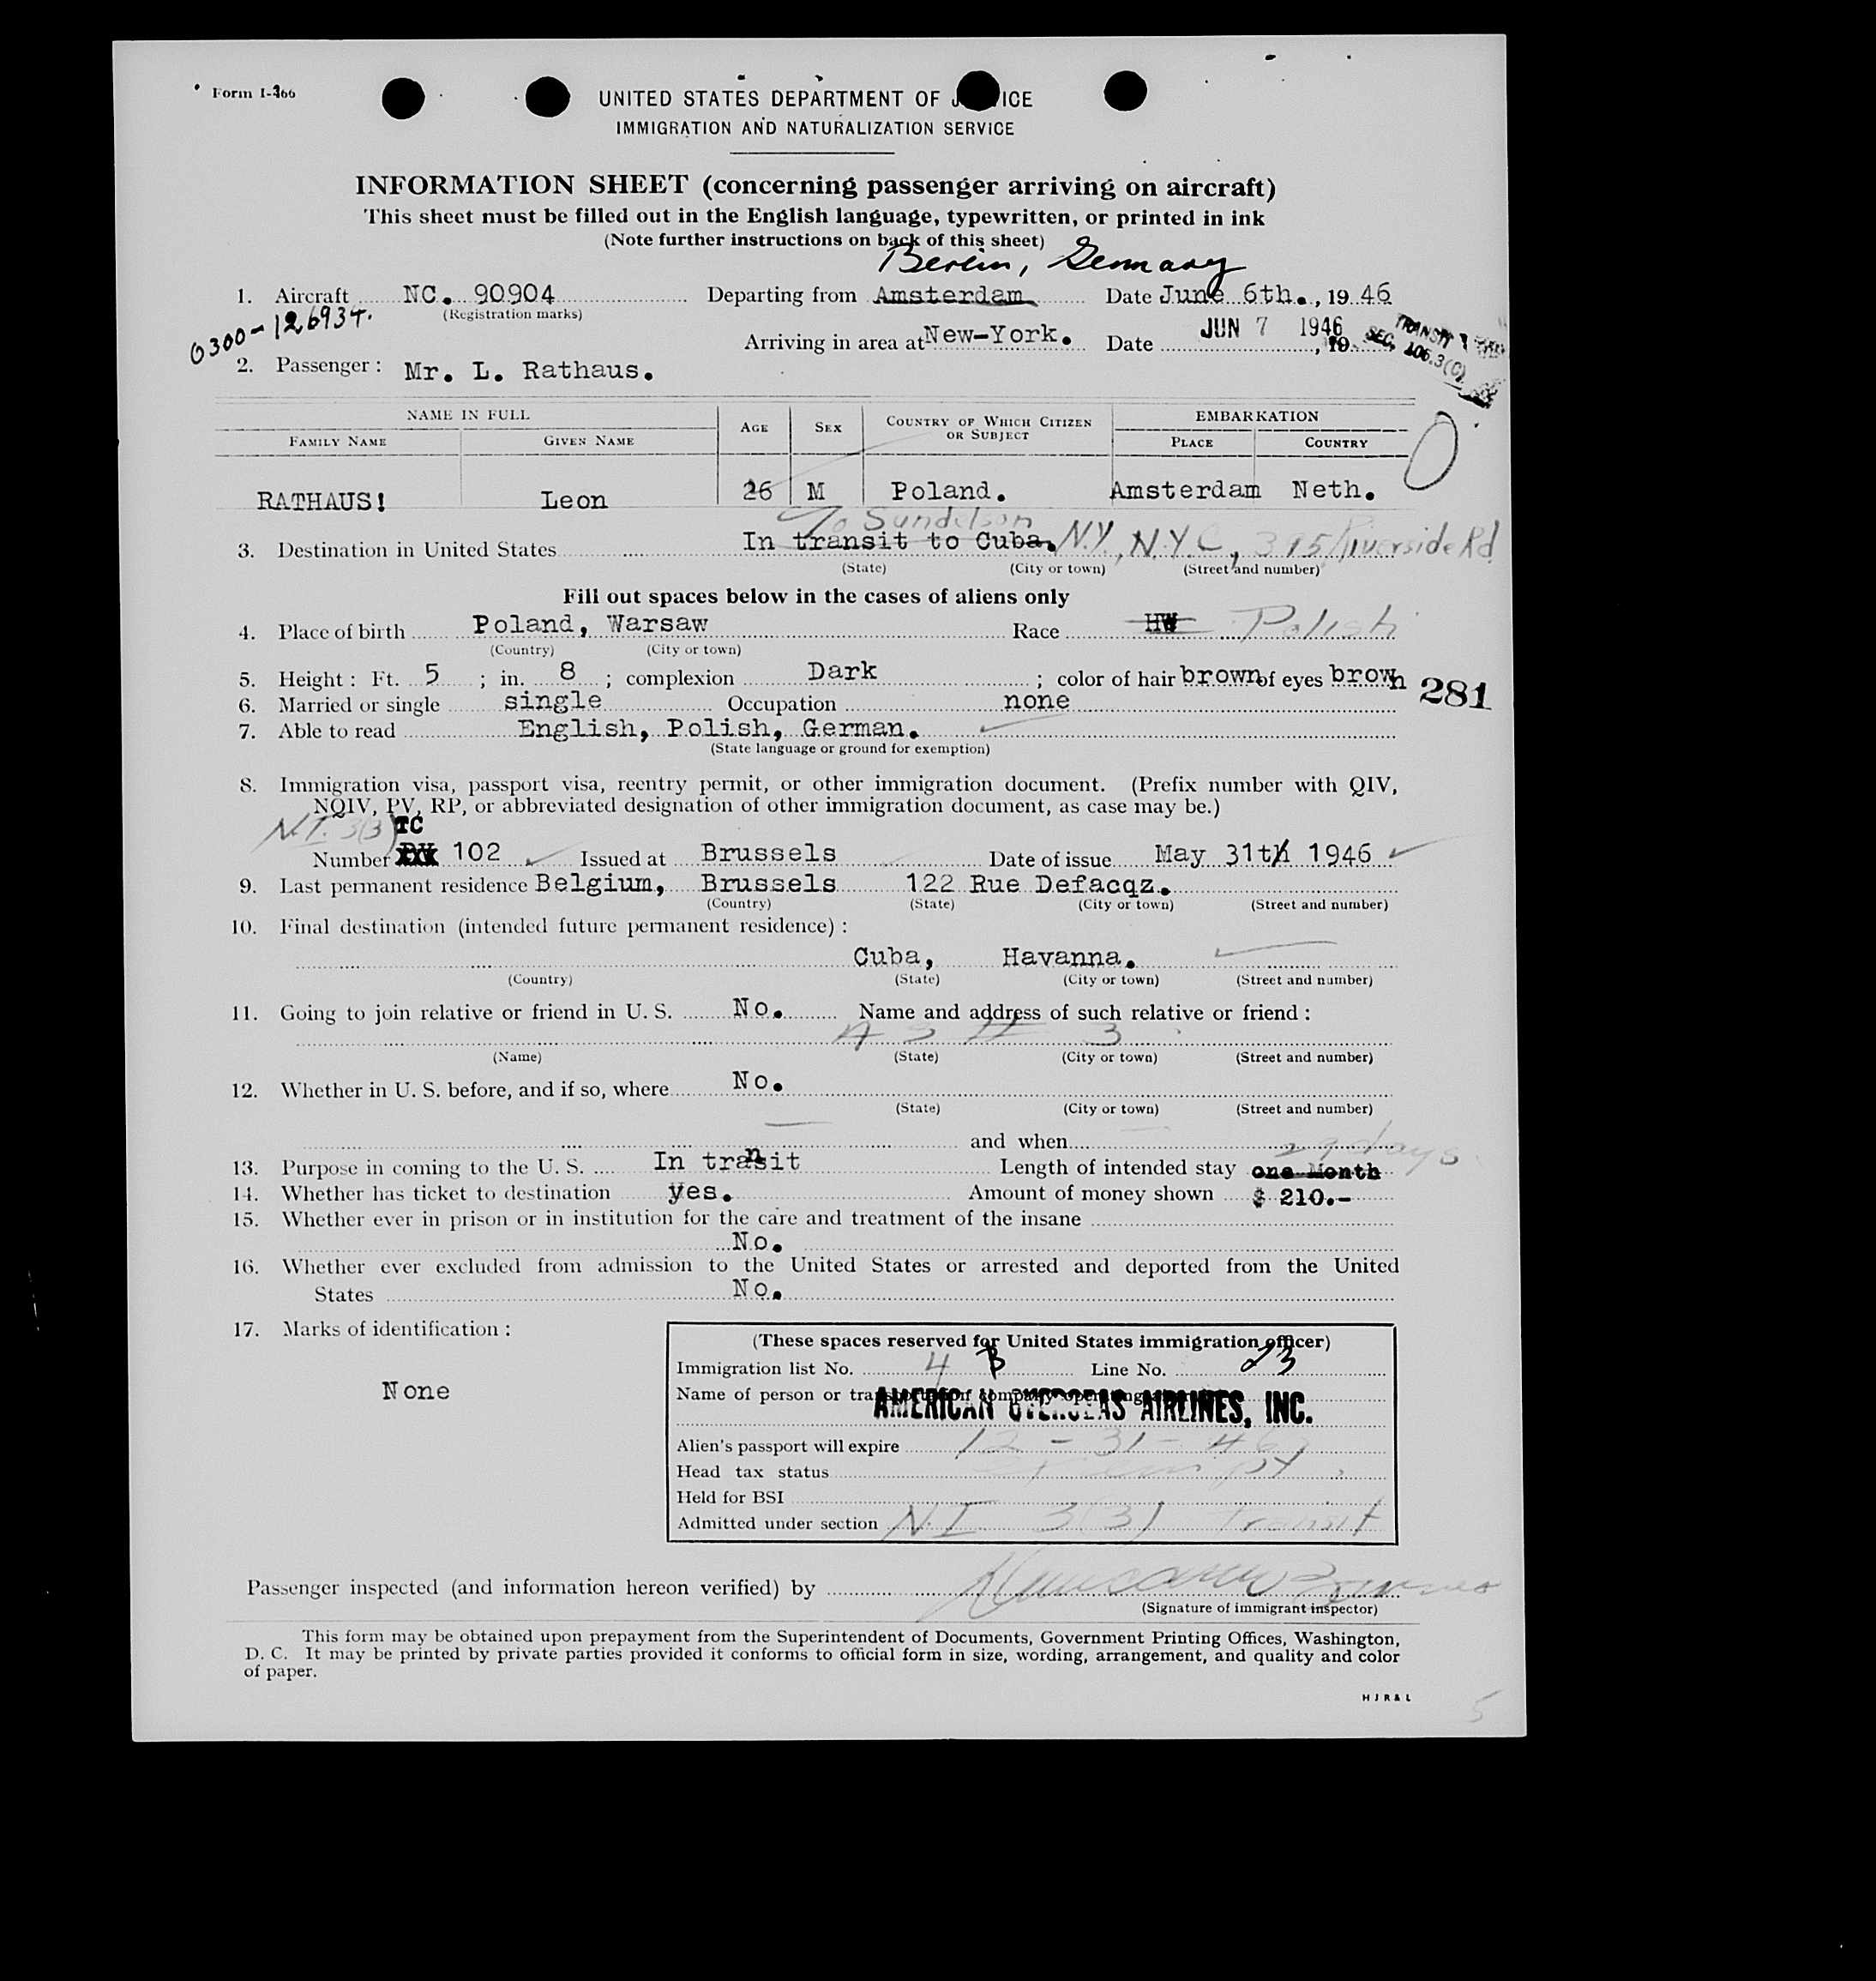 Form I-466
UNITED STATES DEPARTMENT OF J ICE
IMMIGRATION AND NATURALIZATION SERVICE
INFORMATION SHEET (concerning passenger arriving on aircraft)
This sheet must be filled out in the English language, typewritten, or printed in ink
(Note further instructions on back of this sheet)
Berlin, Germany
1. Aircraft NC. 90904 Departing from Amsterdam Date June 6th., 19 46
(Registration marks)
0300-126934.
Arriving in area at New-York. Date JUN 7 1946, 19
TRANSIT
SEC. 106.3(C)
2. Passenger: Mr. L. Rathaus.
NAME IN FULL AGE SEX COUNTRY OF WHICH CITIZEN OR SUBJECT EMBARKATION
FAMILY NAME GIVEN NAME PLACE COUNTRY
RATHAUS! Leon 26 M Poland. Amsterdam Neth.
c/o Sundelson
3. Destination in United States In transit to Cuba. N.Y., N.Y.C., 395 Riverside Rd
(State) (City or town) (Street and number)
Fill out spaces below in the cases of aliens only
4. Place of birth Poland, Warsaw Race HW Polish
(Country) (City or town)
5. Height: Ft. 5; in. 8; complexion Dark; color of hair brown of eyes brown
281
6. Married or single single Occupation none
7. Able to read English, Polish, German.
(State language or ground for exemption)
8. Immigration visa, passport visa, reentry permit, or other immigration document. (Prefix number with QIV,
NQIV, PV, RP, or abbreviated designation of other immigration document, as case may be.)
N.I. 3(3) TC
Number 102 Issued at Brussels Date of issue May 31th 1946
9. Last permanent residence Belgium, Brussels 122 Rue Defacqz.
(Country) (State) (City or town) (Street and number)
10. Final destination (intended future permanent residence):
Cuba, Havanna.
(Country) (State) (City or town) (Street and number)
11. Going to join relative or friend in U. S. No. Name and address of such relative or friend:
(Name) (State) (City or town) (Street and number)
12. Whether in U. S. before, and if so, where No.
(State) (City or town) (Street and number)
and when
29 days
13. Purpose in coming to the U. S. In transit Length of intended stay one Month
14. Whether has ticket to destination yes. Amount of money shown $ 210.-
15. Whether ever in prison or in institution for the care and treatment of the insane
No.
16. Whether ever excluded from admission to the United States or arrested and deported from the United
States No.
17. Marks of identification:
None
(These spaces reserved for United States immigration officer)
Immigration list No. 4 B Line No. 23
Name of person or transportation company operating
AMERICAN OVERSEAS AIRLINES, INC.
Alien's passport will expire 12-31-46
Head tax status Exempt
Held for BSI
Admitted under section N.I. 3(3) Transit
Passenger inspected (and information hereon verified) by
(Signature of immigrant inspector)
This form may be obtained upon prepayment from the Superintendent of Documents, Government Printing Offices, Washington,
D. C. It may be printed by private parties provided it conforms to official form in size, wording, arrangement, and quality and color
of paper.
HJR&L
5